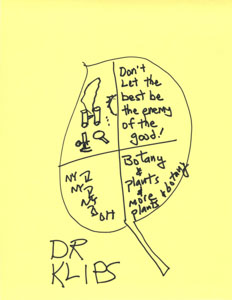 Don't
Let the
best be
the enemy
of the
good!
Botany
&
plants
&
more
plants & botany
NY
NJ
OH
DR
KLIPS